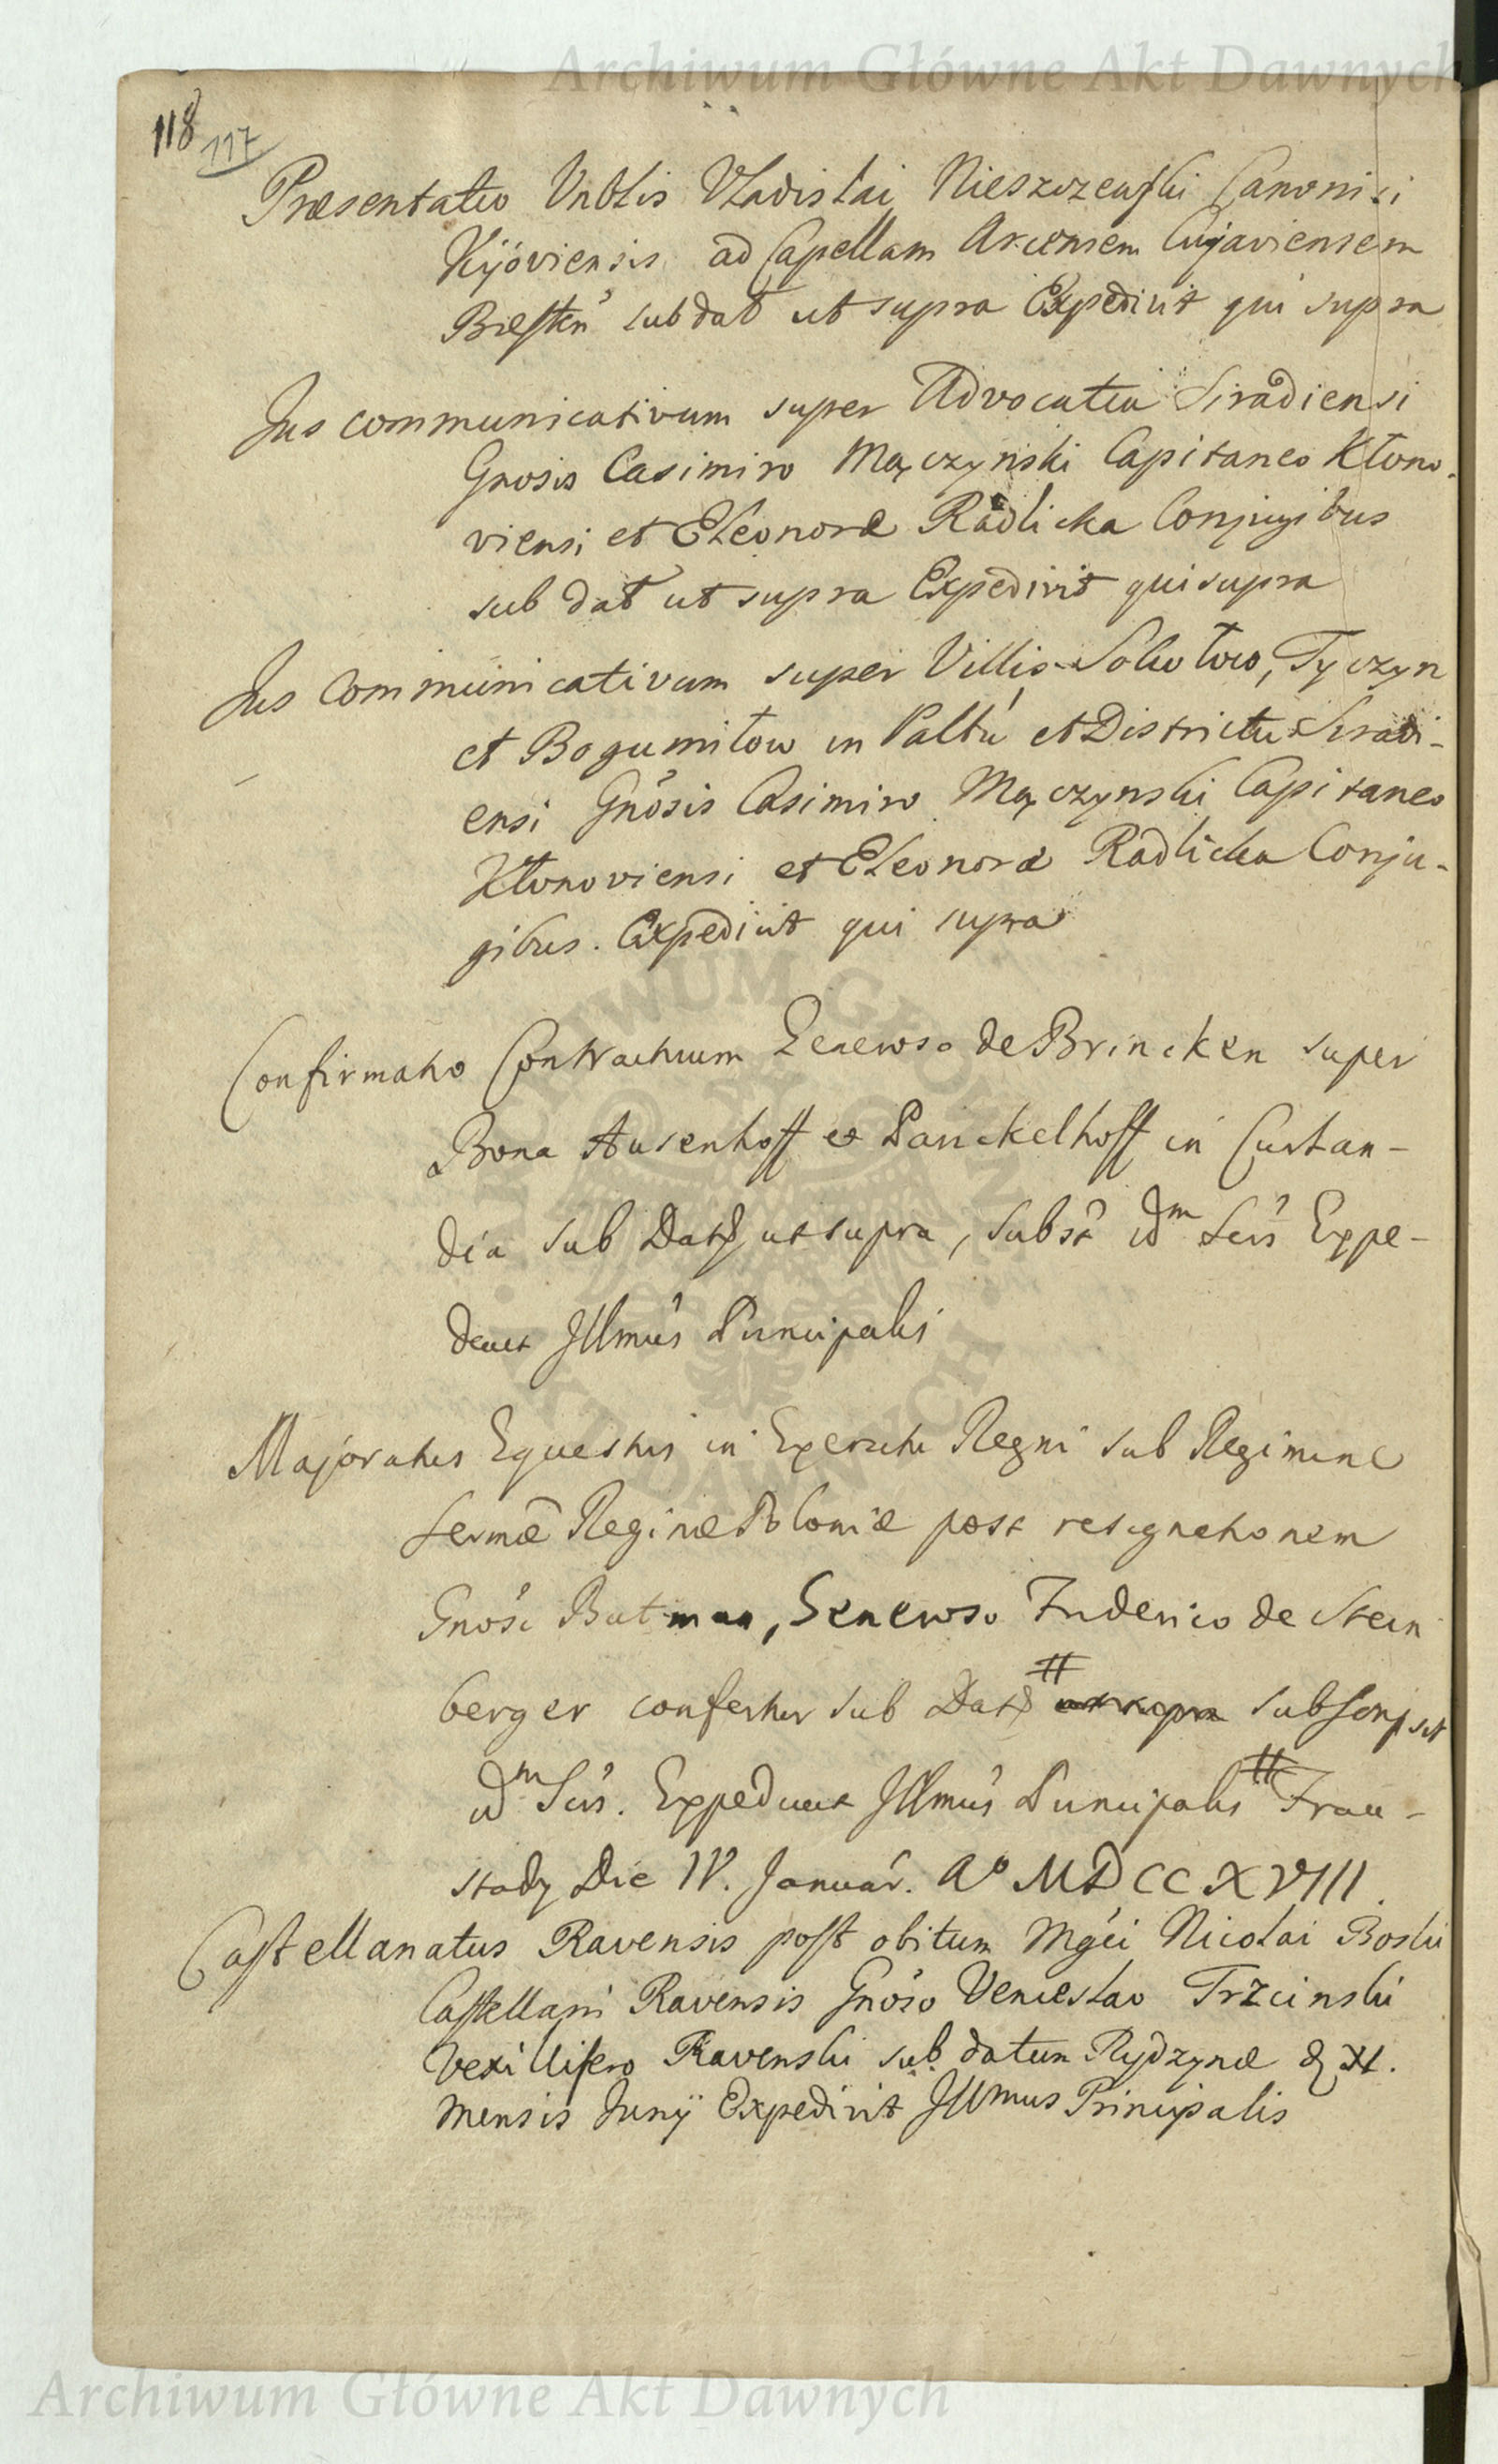 Archiwum Główne Akt Dawnych
118 117
Præsentatio Vnblis Vladislai Nieszczewski Canonici
Kijoviensis ad Capellam Arcensem Cujaviensem
Bresten sub dat ut supra Expedivit qui supra
Jus communicativum super Advocatia Siradiensi
Gnosis Casimiro Mączyński Capitaneo Kłono-
viensi et Eleonoræ Radlicka Conjugibus
sub dat ut supra Expedivit qui supra
Jus Communicativum super Villis Tyczyn
et Bogumiłow in Palttu et Districtu Siradi-
ensi Gnosis Casimiro Mączynski Capitaneo
Kłonoviensi et Eleonoræ Radlicka Conju-
gibus. Expedivit qui supra
Confirmatio Contractuum Generoso de Brincken super
Bona Ausenhoff et Panckelhoff in Curlan-
dia sub Dat ut supra, Subst idm Sers Expe-
divit Illmus Principalis
Majoratus Equestris in Exercitu Regni sub Regimine
Sermæ Reginæ Poloniæ post resignationem
Gnosi Butman, Generoso Friderico de Stein
berger confertur sub Dat # ut supra subscripsit
idm Sers. Expedivit Illmus Principalis # Frau-
stady Die IV. Januar. Ao MDCCXVIII.
Castellanatus Ravensis post obitum Mgci Nicolai Boski
Castellani Ravensis Gnoso Venceslao Trzcinski
Vexillifero Ravenski sub datum Rydzynæ d XI.
mensis Junÿ Expedivit Illmus Principalis
ARCHIWUM GŁÓWNE AKT DAWNYCH
Archiwum Główne Akt Dawnych